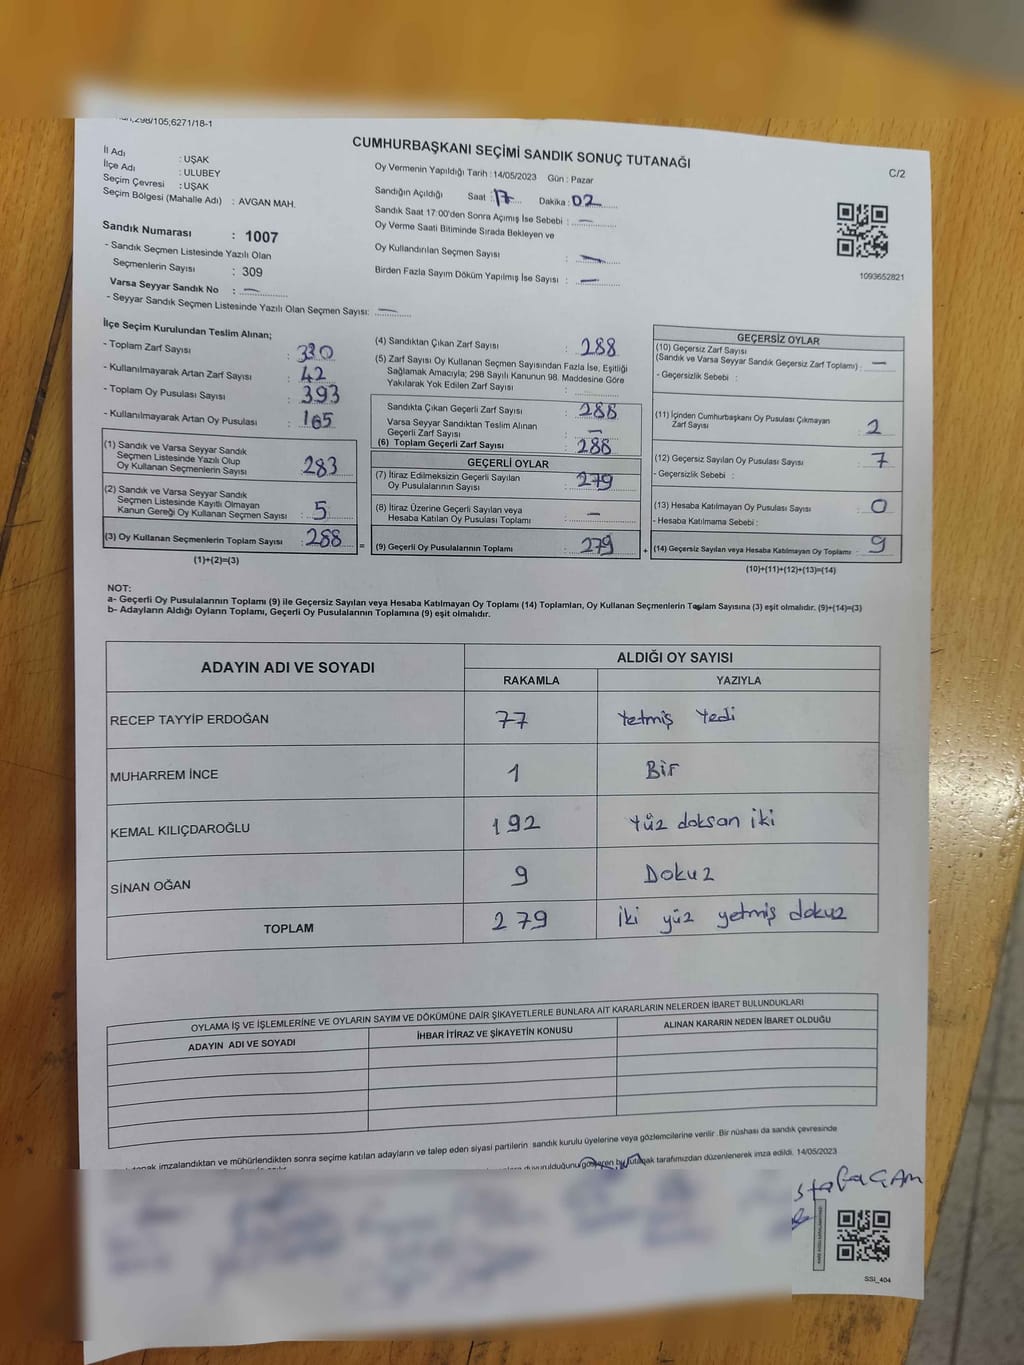 298/105,6271/18-1
CUMHURBAŞKANI SEÇİMİ SANDIK SONUÇ TUTANAĞI
C/2
İl Adı : UŞAK
İlçe Adı : ULUBEY
Seçim Çevresi : UŞAK
Seçim Bölgesi (Mahalle Adı) : AVGAN MAH.
Oy Vermenin Yapıldığı Tarih : 14/05/2023 Gün : Pazar
Sandığın Açıldığı Saat : 17 Dakika : 02
Sandık Saat 17:00'den Sonra Açımış İse Sebebi : —
Oy Verme Saati Bitiminde Sırada Bekleyen ve
Oy Kullandırılan Seçmen Sayısı : —
Birden Fazla Sayım Döküm Yapılmış İse Sayısı : —
1093652821
Sandık Numarası : 1007
- Sandık Seçmen Listesinde Yazılı Olan
Seçmenlerin Sayısı : 309
Varsa Seyyar Sandık No : —
- Seyyar Sandık Seçmen Listesinde Yazılı Olan Seçmen Sayısı: —
İlçe Seçim Kurulundan Teslim Alınan;
- Toplam Zarf Sayısı : 330
- Kullanılmayarak Artan Zarf Sayısı : 42
- Toplam Oy Pusulası Sayısı : 393
- Kullanılmayarak Artan Oy Pusulası : 165
(1) Sandık ve Varsa Seyyar Sandık
Seçmen Listesinde Yazılı Olup
Oy Kullanan Seçmenlerin Sayısı : 283
(2) Sandık ve Varsa Seyyar Sandık
Seçmen Listesinde Kayıtlı Olmayan
Kanun Gereği Oy Kullanan Seçmen Sayısı : 5
(3) Oy Kullanan Seçmenlerin Toplam Sayısı : 288 =
(1)+(2)=(3)
(4) Sandıktan Çıkan Zarf Sayısı : 288
(5) Zarf Sayısı Oy Kullanan Seçmen Sayısından Fazla İse, Eşitliği
Sağlamak Amacıyla; 298 Sayılı Kanunun 98. Maddesine Göre
Yakılarak Yok Edilen Zarf Sayısı :
Sandıkta Çıkan Geçerli Zarf Sayısı : 288
Varsa Seyyar Sandıktan Teslim Alınan
Geçerli Zarf Sayısı : —
(6) Toplam Geçerli Zarf Sayısı : 288
GEÇERLİ OYLAR
(7) İtiraz Edilmeksizin Geçerli Sayılan
Oy Pusulalarının Sayısı : 279
(8) İtiraz Üzerine Geçerli Sayılan veya
Hesaba Katılan Oy Pusulası Toplamı : —
(9) Geçerli Oy Pusulalarının Toplamı : 279 +
GEÇERSİZ OYLAR
(10) Geçersiz Zarf Sayısı
(Sandık ve Varsa Seyyar Sandık Geçersiz Zarf Toplamı) : —
- Geçersizlik Sebebi :
(11) İçinden Cumhurbaşkanı Oy Pusulası Çıkmayan
Zarf Sayısı : 2
(12) Geçersiz Sayılan Oy Pusulası Sayısı : 7
- Geçersizlik Sebebi :
(13) Hesaba Katılmayan Oy Pusulası Sayısı : 0
- Hesaba Katılmama Sebebi :
(14) Geçersiz Sayılan veya Hesaba Katılmayan Oy Toplamı : 9
(10)+(11)+(12)+(13)=(14)
NOT:
a- Geçerli Oy Pusulalarının Toplamı (9) ile Geçersiz Sayılan veya Hesaba Katılmayan Oy Toplamı (14) Toplamları, Oy Kullanan Seçmenlerin Toplam Sayısına (3) eşit olmalıdır. (9)+(14)=(3)
b- Adayların Aldığı Oyların Toplamı, Geçerli Oy Pusulalarının Toplamına (9) eşit olmalıdır.
ADAYIN ADI VE SOYADI ALDIĞI OY SAYISI
RAKAMLA YAZIYLA
RECEP TAYYİP ERDOĞAN 77 Yetmiş Yedi
MUHARREM İNCE 1 Bir
KEMAL KILIÇDAROĞLU 192 Yüz doksan iki
SİNAN OĞAN 9 Dokuz
TOPLAM 279 iki yüz yetmiş dokuz
OYLAMA İŞ VE İŞLEMLERİNE VE OYLARIN SAYIM VE DÖKÜMÜNE DAİR ŞİKAYETLERLE BUNLARA AİT KARARLARIN NELERDEN İBARET BULUNDUKLARI
ADAYIN ADI VE SOYADI İHBAR İTİRAZ VE ŞİKAYETİN KONUSU ALINAN KARARIN NEDEN İBARET OLDUĞU
imzalandıktan ve mühürlendikten sonra seçime katılan adayların ve talep eden siyasi partilerin sandık kurulu üyelerine veya gözlemcilerine verilir. Bir nüshası da sandık çevresinde
duyurulduğunu gösteren bu tutanak tarafımızdan düzenlenerek imza edildi. 14/05/2023
SSİ_404